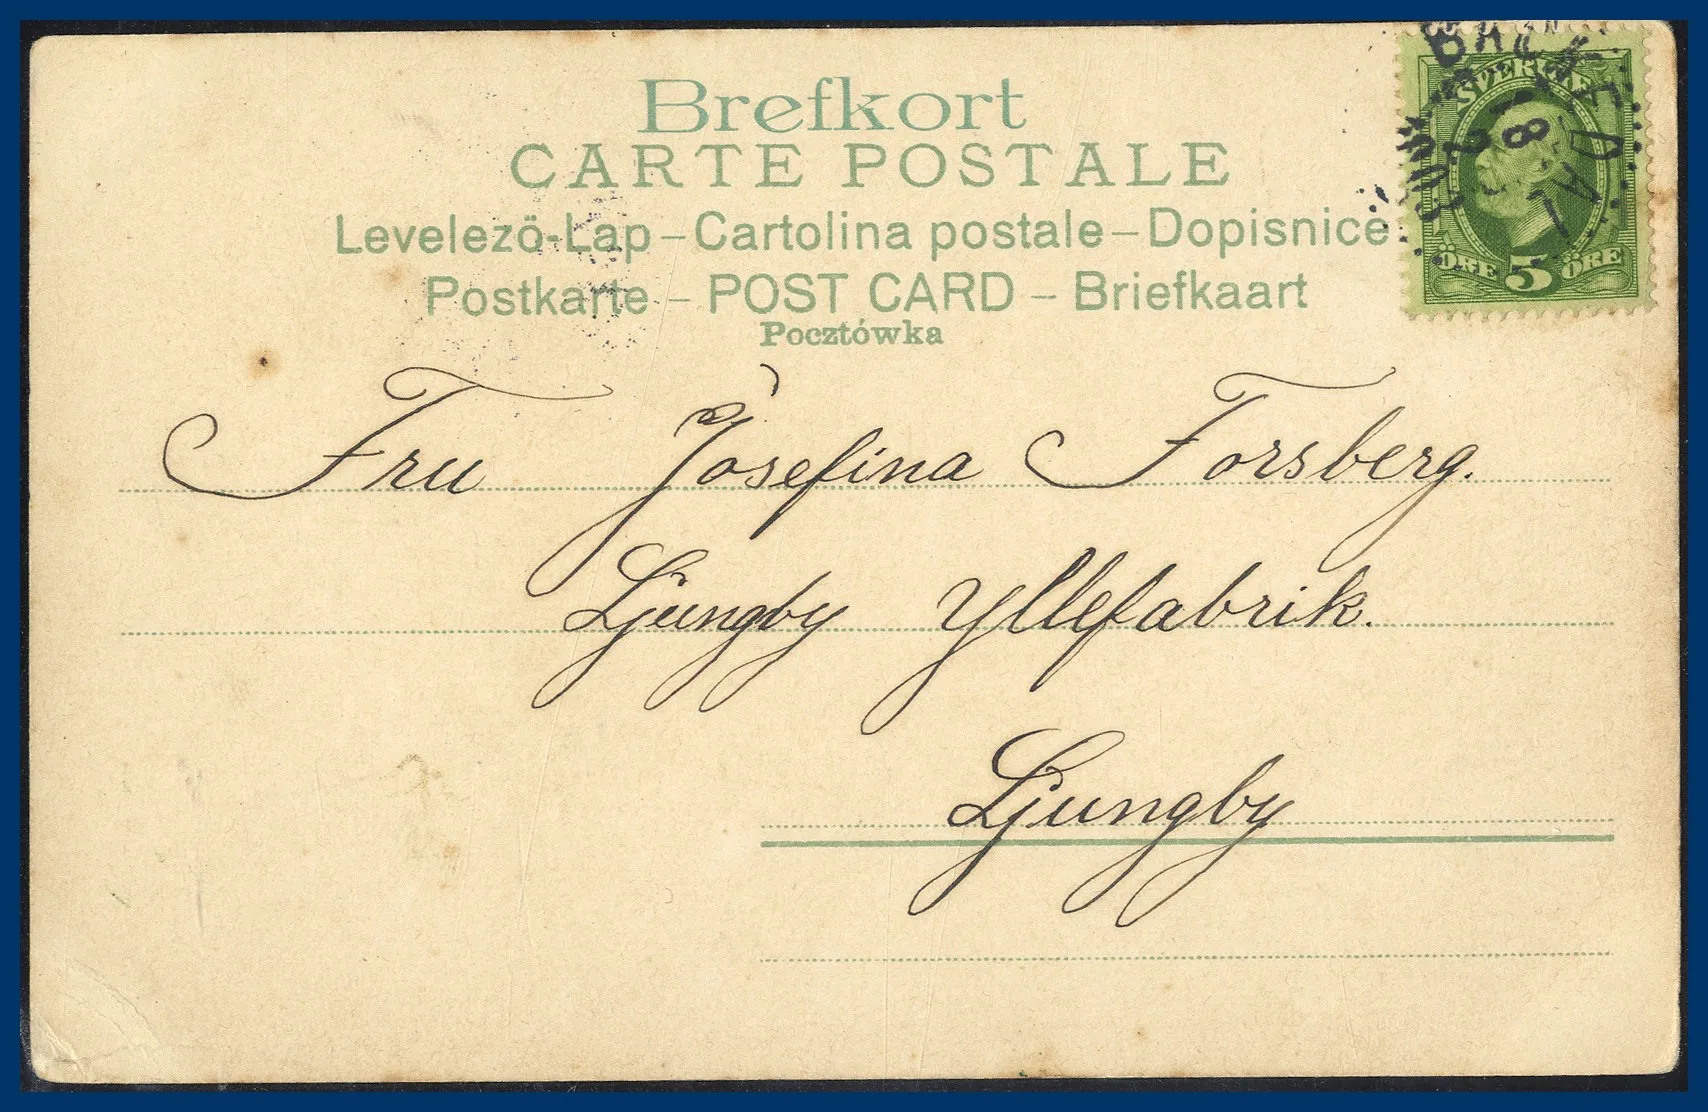 Brefkort
CARTE POSTALE
Levelezö-Lap – Cartolina postale – Dopisnice
Postkarte – POST CARD – Briefkaart
Pocztówka
SVERIGE
ÖRE 5 ÖRE
Fru Josefina Forsberg.
Ljungby Yllefabrik.
Ljungby